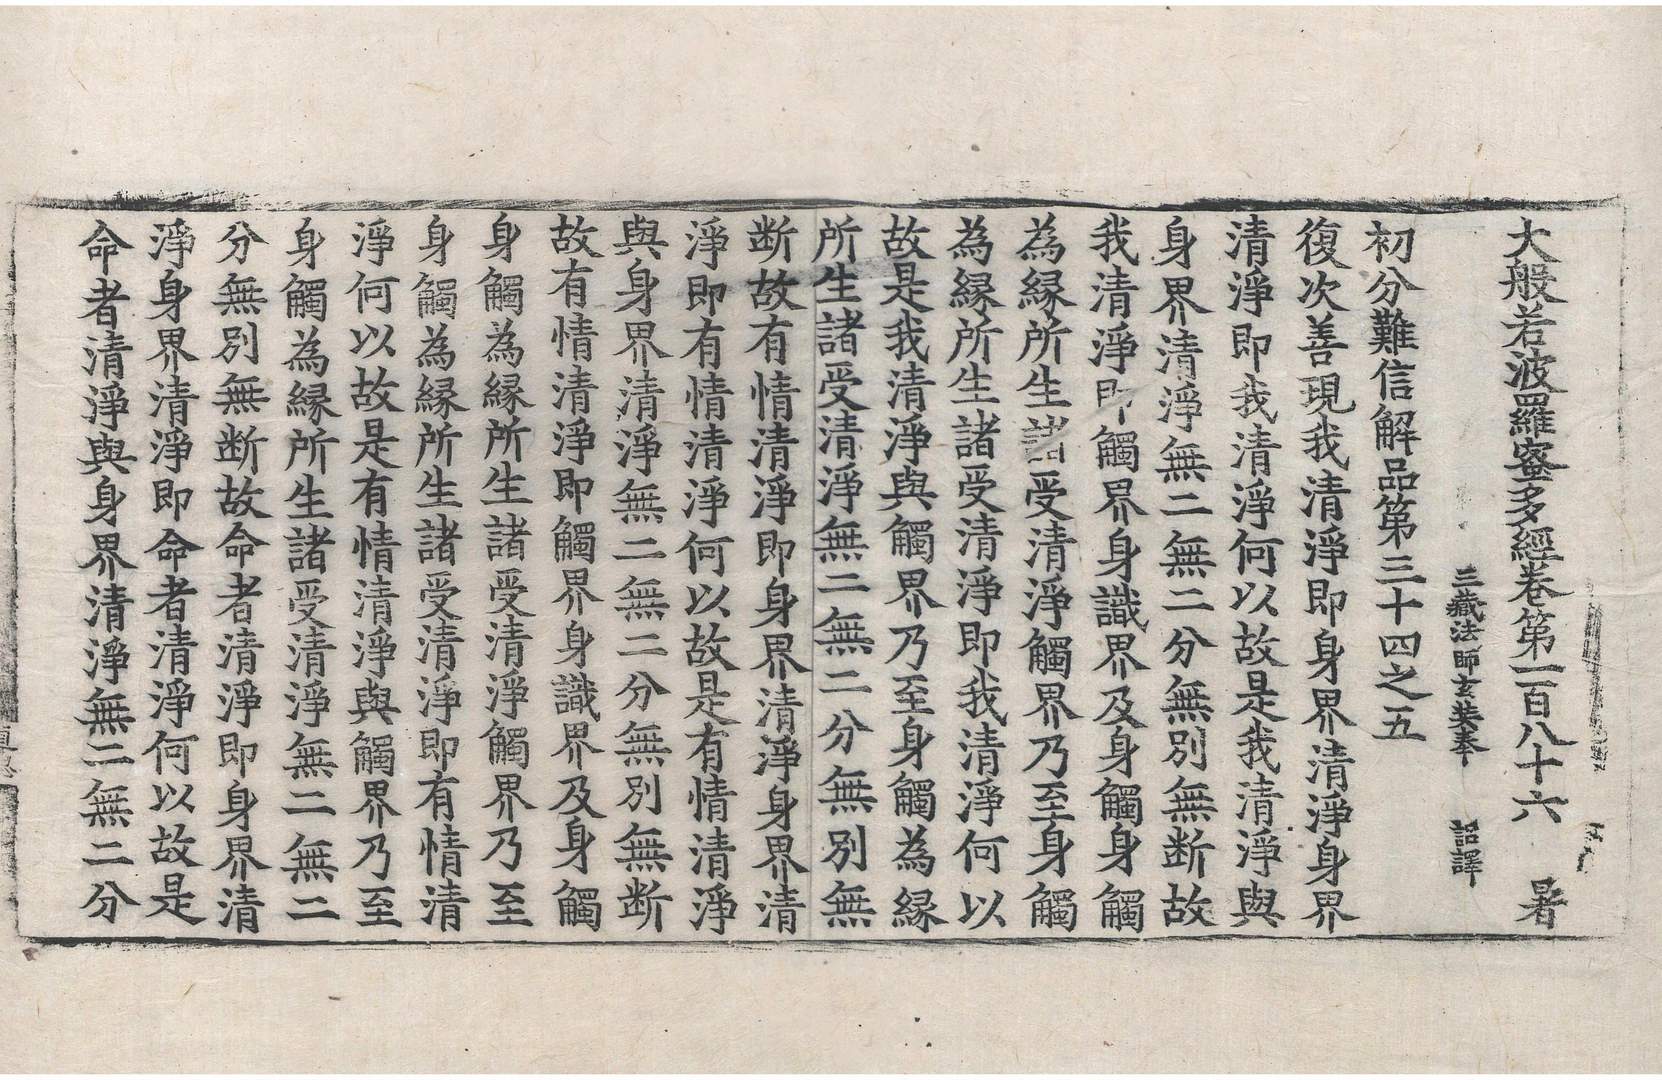 大般若波羅蜜多經卷第一百八十六 暑
三藏法師玄奘奉 詔譯
初分難信解品第三十四之五
復次善現我清淨即身界清淨身界
清淨即我清淨何以故是我清淨與
身界清淨無二無二分無別無断故
我清淨即觸界身識界及身觸身觸
為縁所生諸受清淨觸界乃至身觸
為縁所生諸受清淨即我清淨何以
故是我清淨與觸界乃至身觸為縁
所生諸受清淨無二無二分無別無
断故有情清淨即身界清淨身界清
淨即有情清淨何以故是有情清淨
與身界清淨無二無二分無別無断
故有情清淨即觸界身識界及身觸
身觸為縁所生諸受清淨觸界乃至
身觸為縁所生諸受清淨即有情清
淨何以故是有情清淨與觸界乃至
身觸為縁所生諸受清淨無二無二
分無別無断故命者清淨即身界清
淨身界清淨即命者清淨何以故是
命者清淨與身界清淨無二無二分